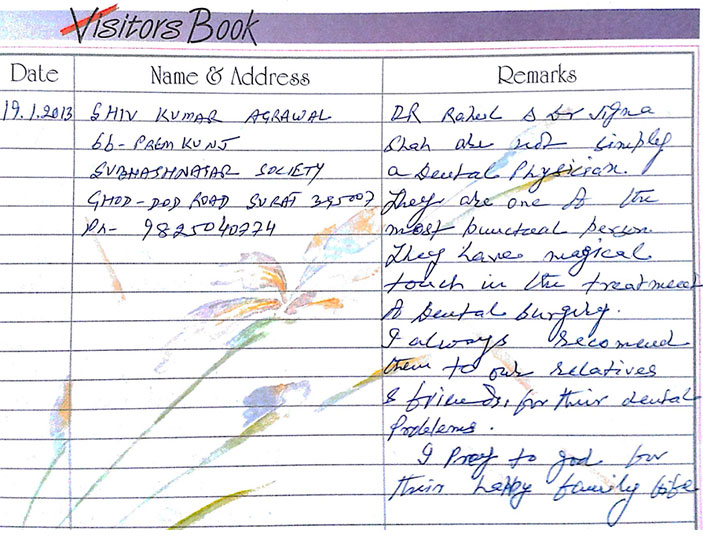 Visitors Book
Date Name & Address Remarks
19.1.2013 SHIV KUMAR AGRAWAL DR Rahul & Dr Jigna
66- PREM KUNJ Shah are not simply
SUBHASHNAGAR SOCIETY a Dental Physician.
GHOD-DOD ROAD SURAT 395007 They are one of the
Ph- 9825040774 most punctual person
They have magical
touch in the treatment
of Dental surgery.
I always recomend
them to our relatives
& friends, for their dental
Problems.
I Pray to god for
their happy family life